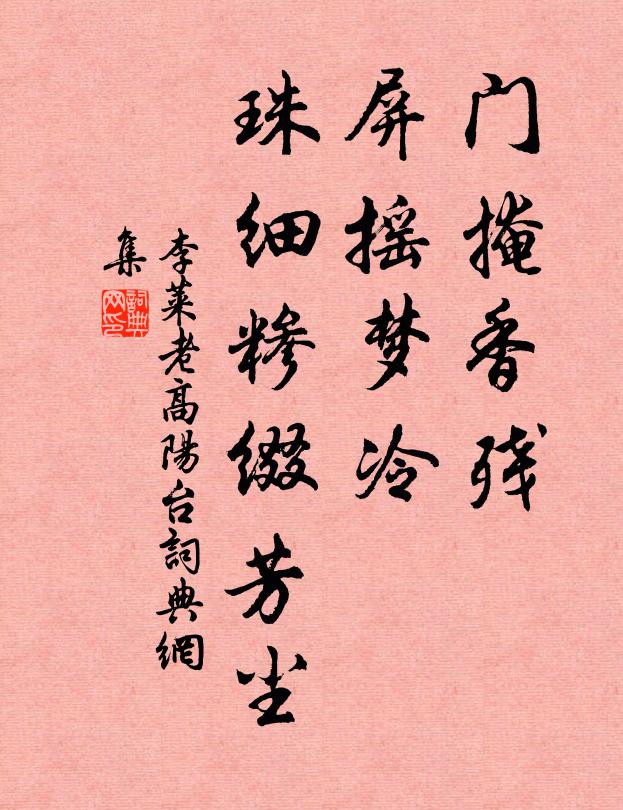 门掩香残
屏摇梦冷
珠细糁缀芳尘
李莱老高陽台詞典網
集
詞典
网印